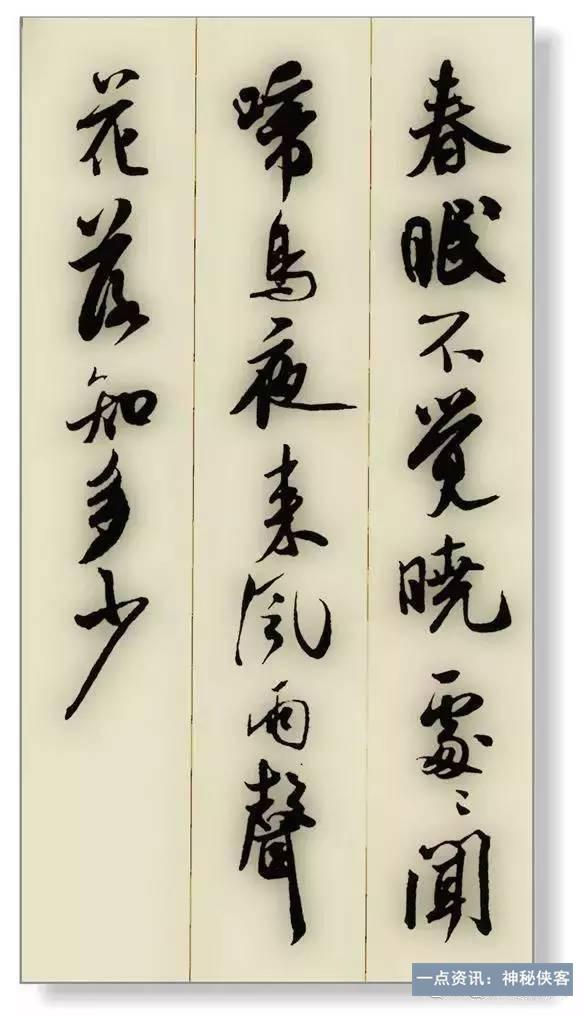 春眠不觉晓處〻聞
啼鳥夜来风雨聲
花落知多少
一点资讯：神秘侠客